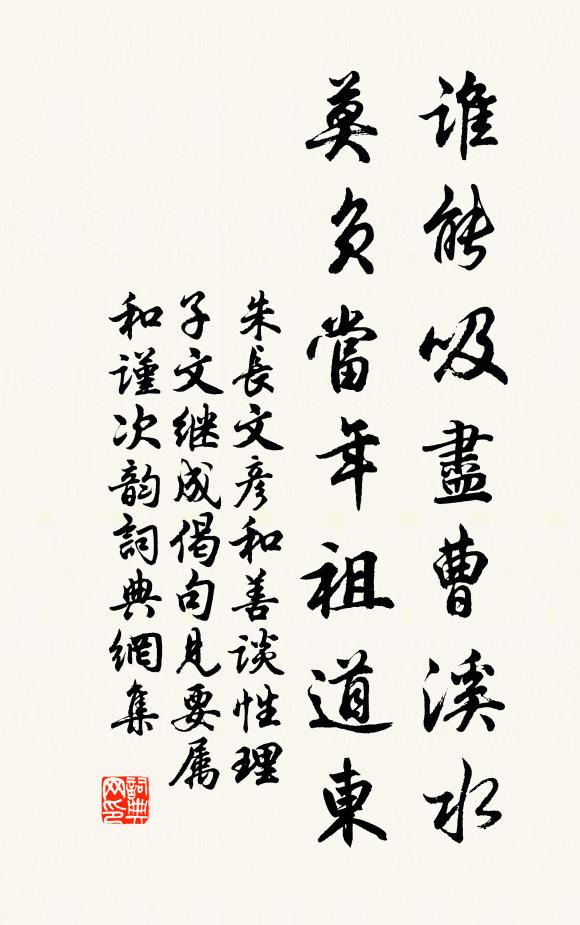 誰能吸盡曹溪水
莫負當年祖道東
朱長文彦和善談性理
子文继成偈句見要属
和謹次韵詞典網集
詞典網印